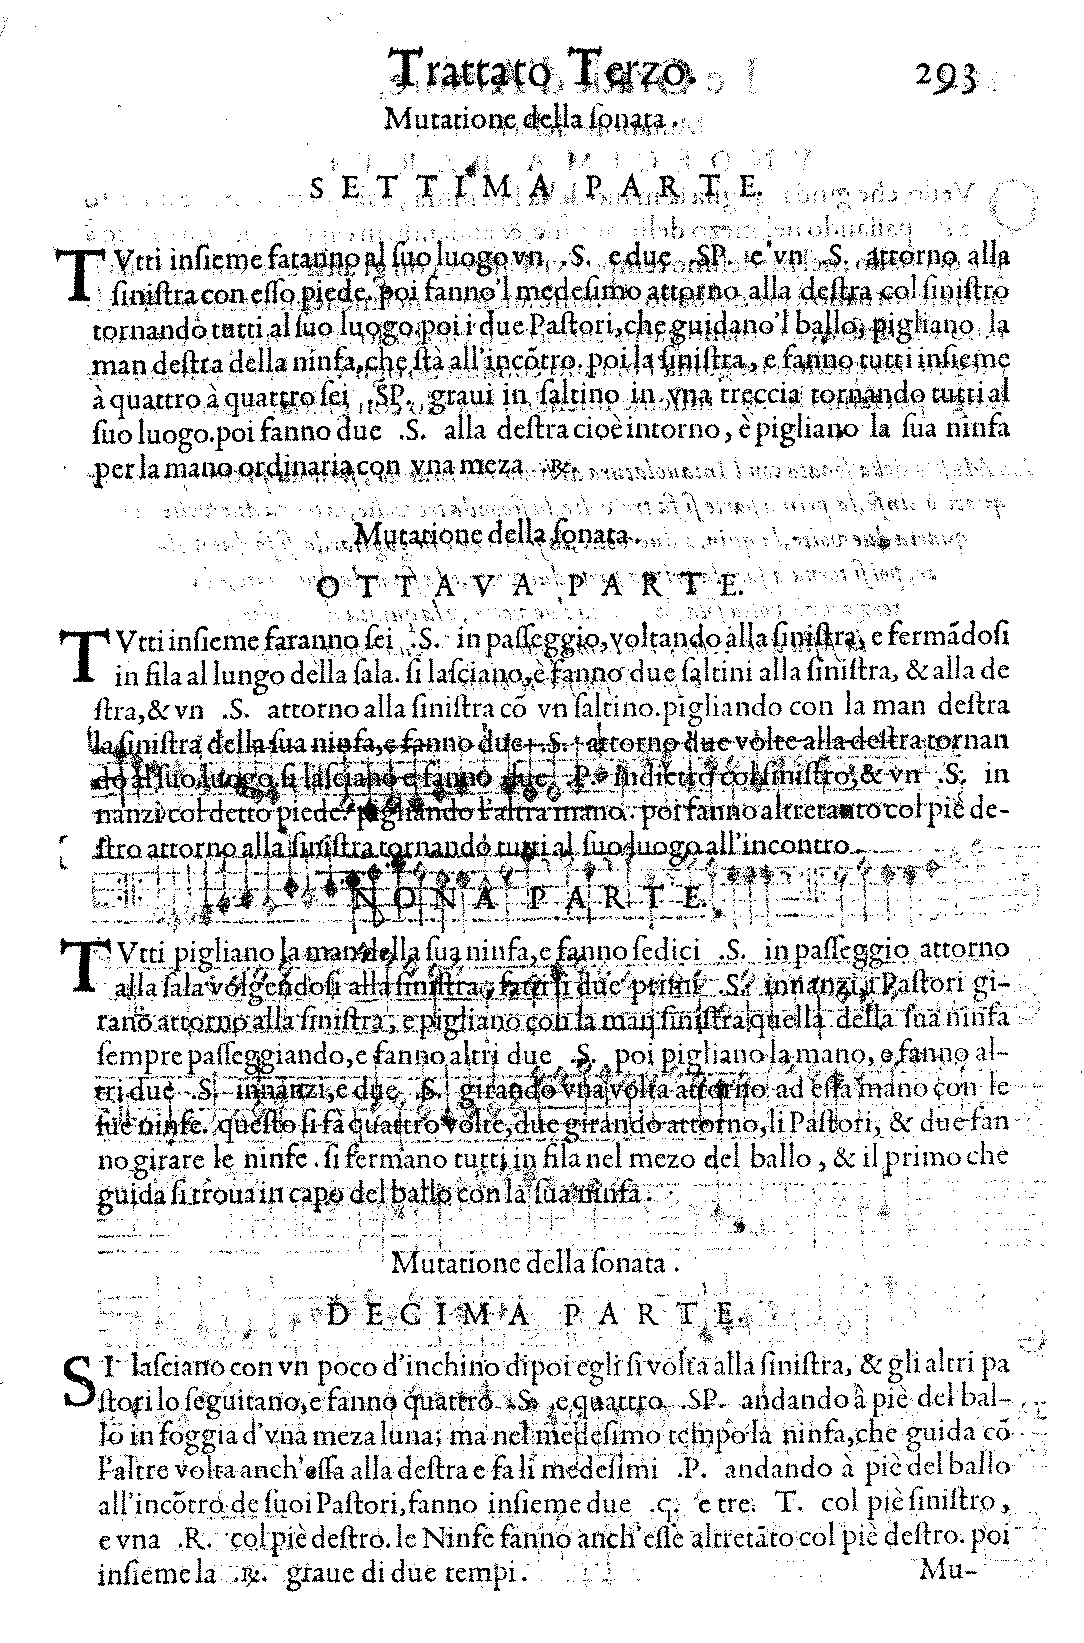 Trattato Terzo. 293
Mutatione della ſonata.
SETTIMA PARTE.
TVtti inſieme faranno al ſuo luogo vn .S. e due .SP. e vn .S. attorno alla
ſiniſtra con eſſo piede. poi fanno'l medeſimo attorno alla deſtra col ſiniſtro
tornando tutti al ſuo luogo. poi i due Paſtori, che guidano'l ballo, pigliano la
man deſtra della ninfa, che ſtà all'incõtro. poi la ſiniſtra, e fanno tutti inſieme
à quattro à quattro ſei .SP. graui in ſaltino in vna treccia tornando tutti al
ſuo luogo. poi fanno due .S. alla deſtra cioè intorno, è pigliano la ſua ninfa
per la mano ordinaria con vna meza .℞.
Mutatione della ſonata.
OTTAVA PARTE.
TVtti inſieme faranno ſei .S. in paſſeggio, voltando alla ſiniſtra, e fermãdoſi
in fila al lungo della ſala. ſi laſciano, è fanno due ſaltini alla ſiniſtra, & alla de
ſtra, & vn .S. attorno alla ſiniſtra cõ vn ſaltino. pigliando con la man deſtra
la ſiniſtra della ſua ninfa, e fanno due .S. attorno due volte alla deſtra tornan
do al ſuo luogo. ſi laſciano e fanno due .P. indietro col ſiniſtro, & vn .S. in
nanzi col detto piede. pigliando l'altra mano. poi fanno altretanto col piè de-
ſtro attorno alla ſiniſtra tornando tutti al ſuo luogo all'incontro.
NONA PARTE.
TVtti pigliano la man della ſua ninfa, e fanno ſedici .S. in paſſeggio attorno
alla ſala volgendoſi alla ſiniſtra, fatti li due primi .S. innanzi, i Paſtori gi-
rano attorno alla ſiniſtra, e pigliano con la man ſiniſtra quella della ſua ninfa
ſempre paſſeggiando, e fanno altri due .S. poi pigliano la mano, e fanno al-
tri due .S. innanzi, e due .S. girando vna volta attorno ad eſſa mano con le
ſue ninfe. queſto ſi fà quattro volte, due girando attorno, li Paſtori, & due fan
no girare le ninfe. ſi fermano tutti in fila nel mezo del ballo, & il primo che
guida ſi troua in capo del ballo con la ſua ninfa.
Mutatione della ſonata.
DECIMA PARTE.
SI laſciano con vn poco d'inchino dipoi egli ſi volta alla ſiniſtra, & gli altri pa
ſtori lo ſeguitano, e fanno quattro .S. e quattro .SP. andando à piè del bal-
lo in foggia d'vna meza luna; ma nel medeſimo tempo la ninfa, che guida cõ
l'altre volta anch'eſſa alla deſtra e fa li medeſimi .P. andando à piè del ballo
all'incõtro de ſuoi Paſtori, fanno inſieme due .ç. e tre. T. col piè ſiniſtro,
e vna .R. col piè deſtro. le Ninfe fanno anch'eſſe altretãto col piè deſtro. poi
inſieme la .℞. graue di due tempi.
Mu-